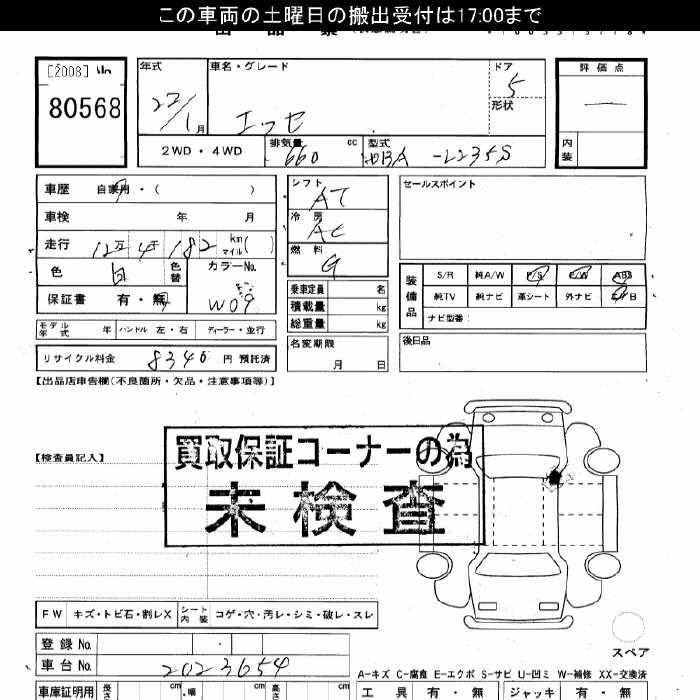 この車両の土曜日の搬出受付は17:00まで
[2008]
80568
年式 22/1月
車名・グレード エッセ
ドア 5
形状
評価点 —
内装
2WD・4WD
排気量 660 cc
型式 DBA-L235S
車歴 自家用・( )
車検 年 月
走行 12万4千182 km マイル( )
色 白 色替 カラーNo. W09
保証書 有・無
モデル年式 年 ハンドル 左・右 ディーラー・並行
リサイクル料金 8340 円 預託済
シフト AT
冷房 AC
燃料 G
乗車定員 名
積載量 kg
総重量 kg
名変期限 月 日
セールスポイント
装備品
S/R 純A/W P/S P/W ABS
純TV 純ナビ 革シート 外ナビ エアB
ナビ型番:
後日品
【出品店申告欄(不良箇所・欠品・注意事項等)】
【検査員記入】
買取保証コーナーの為
未検査
FW キズ・トビ石・割レX シート内装 コゲ・穴・汚レ・シミ・破レ・スレ
登録 No.
車台 No. 2023654
スペア
A-キズ C-腐食 E-エクボ S-サビ U-凹ミ W-補修 XX-交換済
車庫証明用 長さ cm 幅 cm 高さ cm
工具 有・無 ジャッキ 有・無